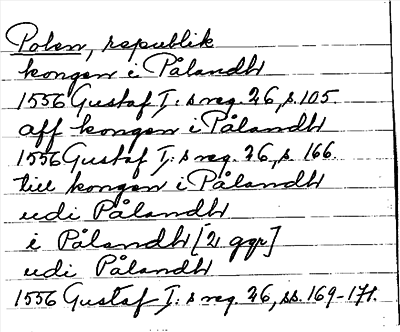 Polen, republik
kongen i Pålandh
1556 Gustaf I:s reg. 26, s. 105.
aff kongen i Pålandh
1556 Gustaf I:s reg. 26, s. 166.
till kongen i Pålandh
udi Pålandh
i Pålandh [2 ggr]
udi Pålandh
1556 Gustaf I:s reg. 26, ss. 169-171.